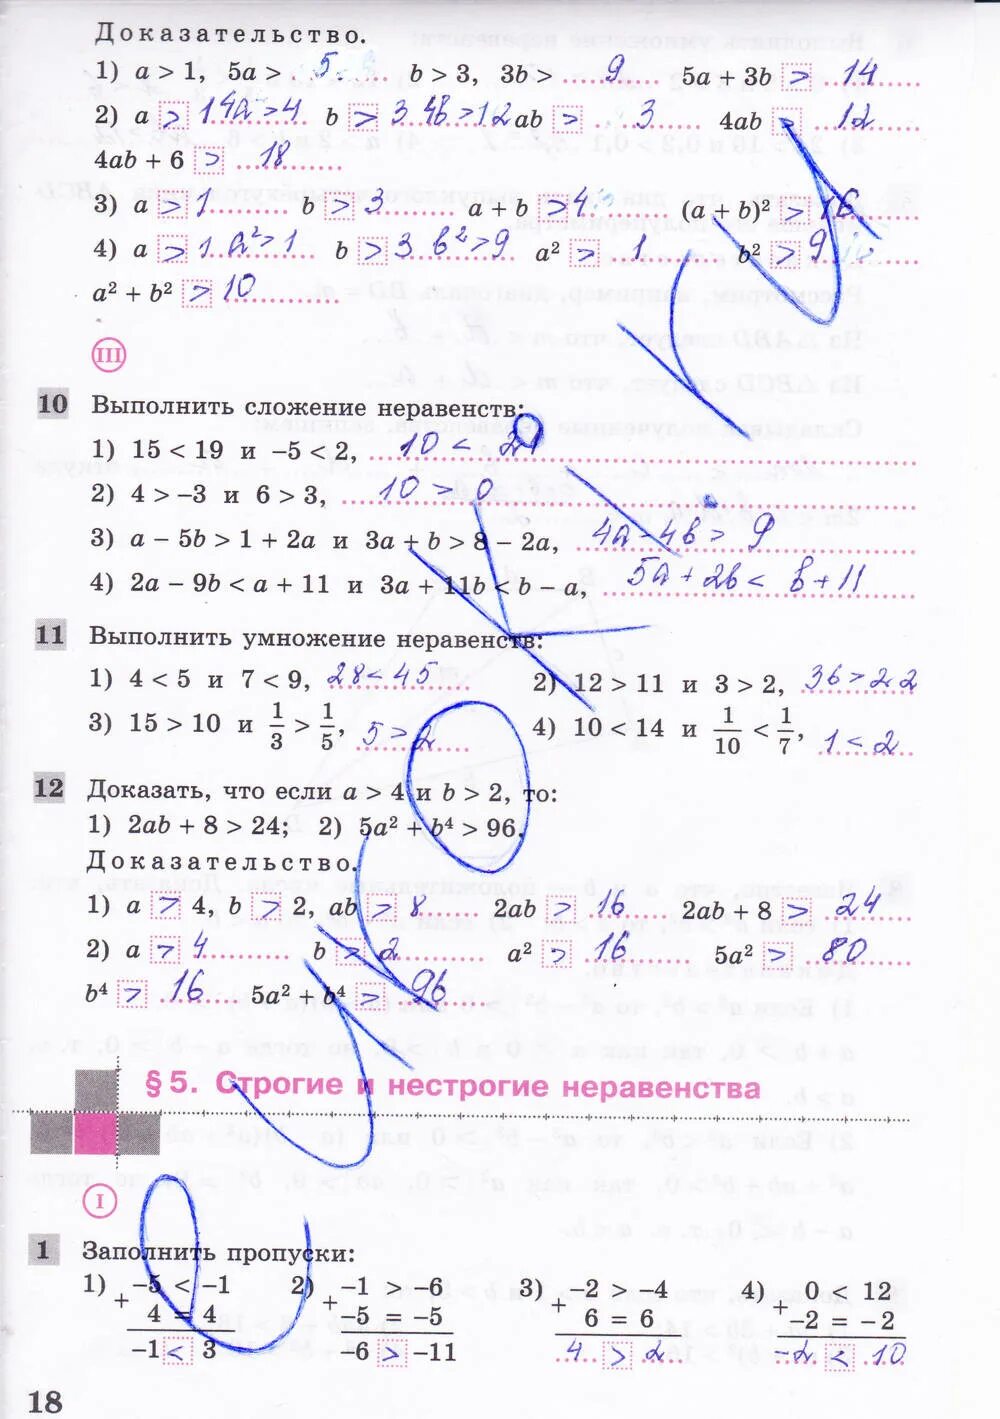 Доказательство.
1) a > 1, 5a > 5 b > 3, 3b > 9 5a + 3b > 14
2) a > 1 4a > 4 b > 3 4b > 12 ab > 3 4ab > 12
4ab + 6 > 18
3) a > 1 b > 3 a + b > 4 (a + b)² > 16
4) a > 1 a² > 1 b > 3 b² > 9 a² > 1 b² > 9
a² + b² > 10
III
10 Выполнить сложение неравенств:
1) 15 < 19 и –5 < 2, 10 < 21
2) 4 > –3 и 6 > 3, 10 > 0
3) a – 5b > 1 + 2a и 3a + b > 8 – 2a, 4a - 4b > 9
4) 2a – 9b < a + 11 и 3a + 11b < b – a, 5a + 2b < b + 11
11 Выполнить умножение неравенств:
1) 4 < 5 и 7 < 9, 28 < 45 2) 12 > 11 и 3 > 2, 36 > 22
3) 15 > 10 и 1/3 > 1/5, 5 > 2 4) 10 < 14 и 1/10 < 1/7, 1 < 2
12 Доказать, что если a > 4 и b > 2, то:
1) 2ab + 8 > 24; 2) 5a² + b⁴ > 96.
Доказательство.
1) a > 4, b > 2, ab > 8 2ab > 16 2ab + 8 > 24
2) a > 4 b > 2 a² > 16 5a² > 80
b⁴ > 16 5a² + b⁴ > 96
§ 5. Строгие и нестрогие неравенства
I
1 Заполнить пропуски:
1) –5 < –1 2) –1 > –6 3) –2 > –4 4) 0 < 12
+ 4 = 4 + –5 = –5 + 6 = 6 + –2 = –2
–1 < 3 –6 > –11 4 > 2 -2 < 10
18